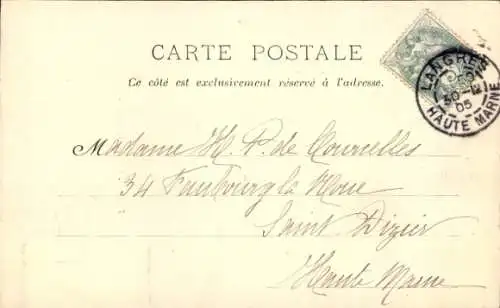 CARTE POSTALE
Ce côté est exclusivement réservé à l'adresse.
LANGRES
30-12
05
HAUTE MARNE
Madame H. P. de Courcelles
34 Faubourg la Noue
Saint Dizier
Haute Marne